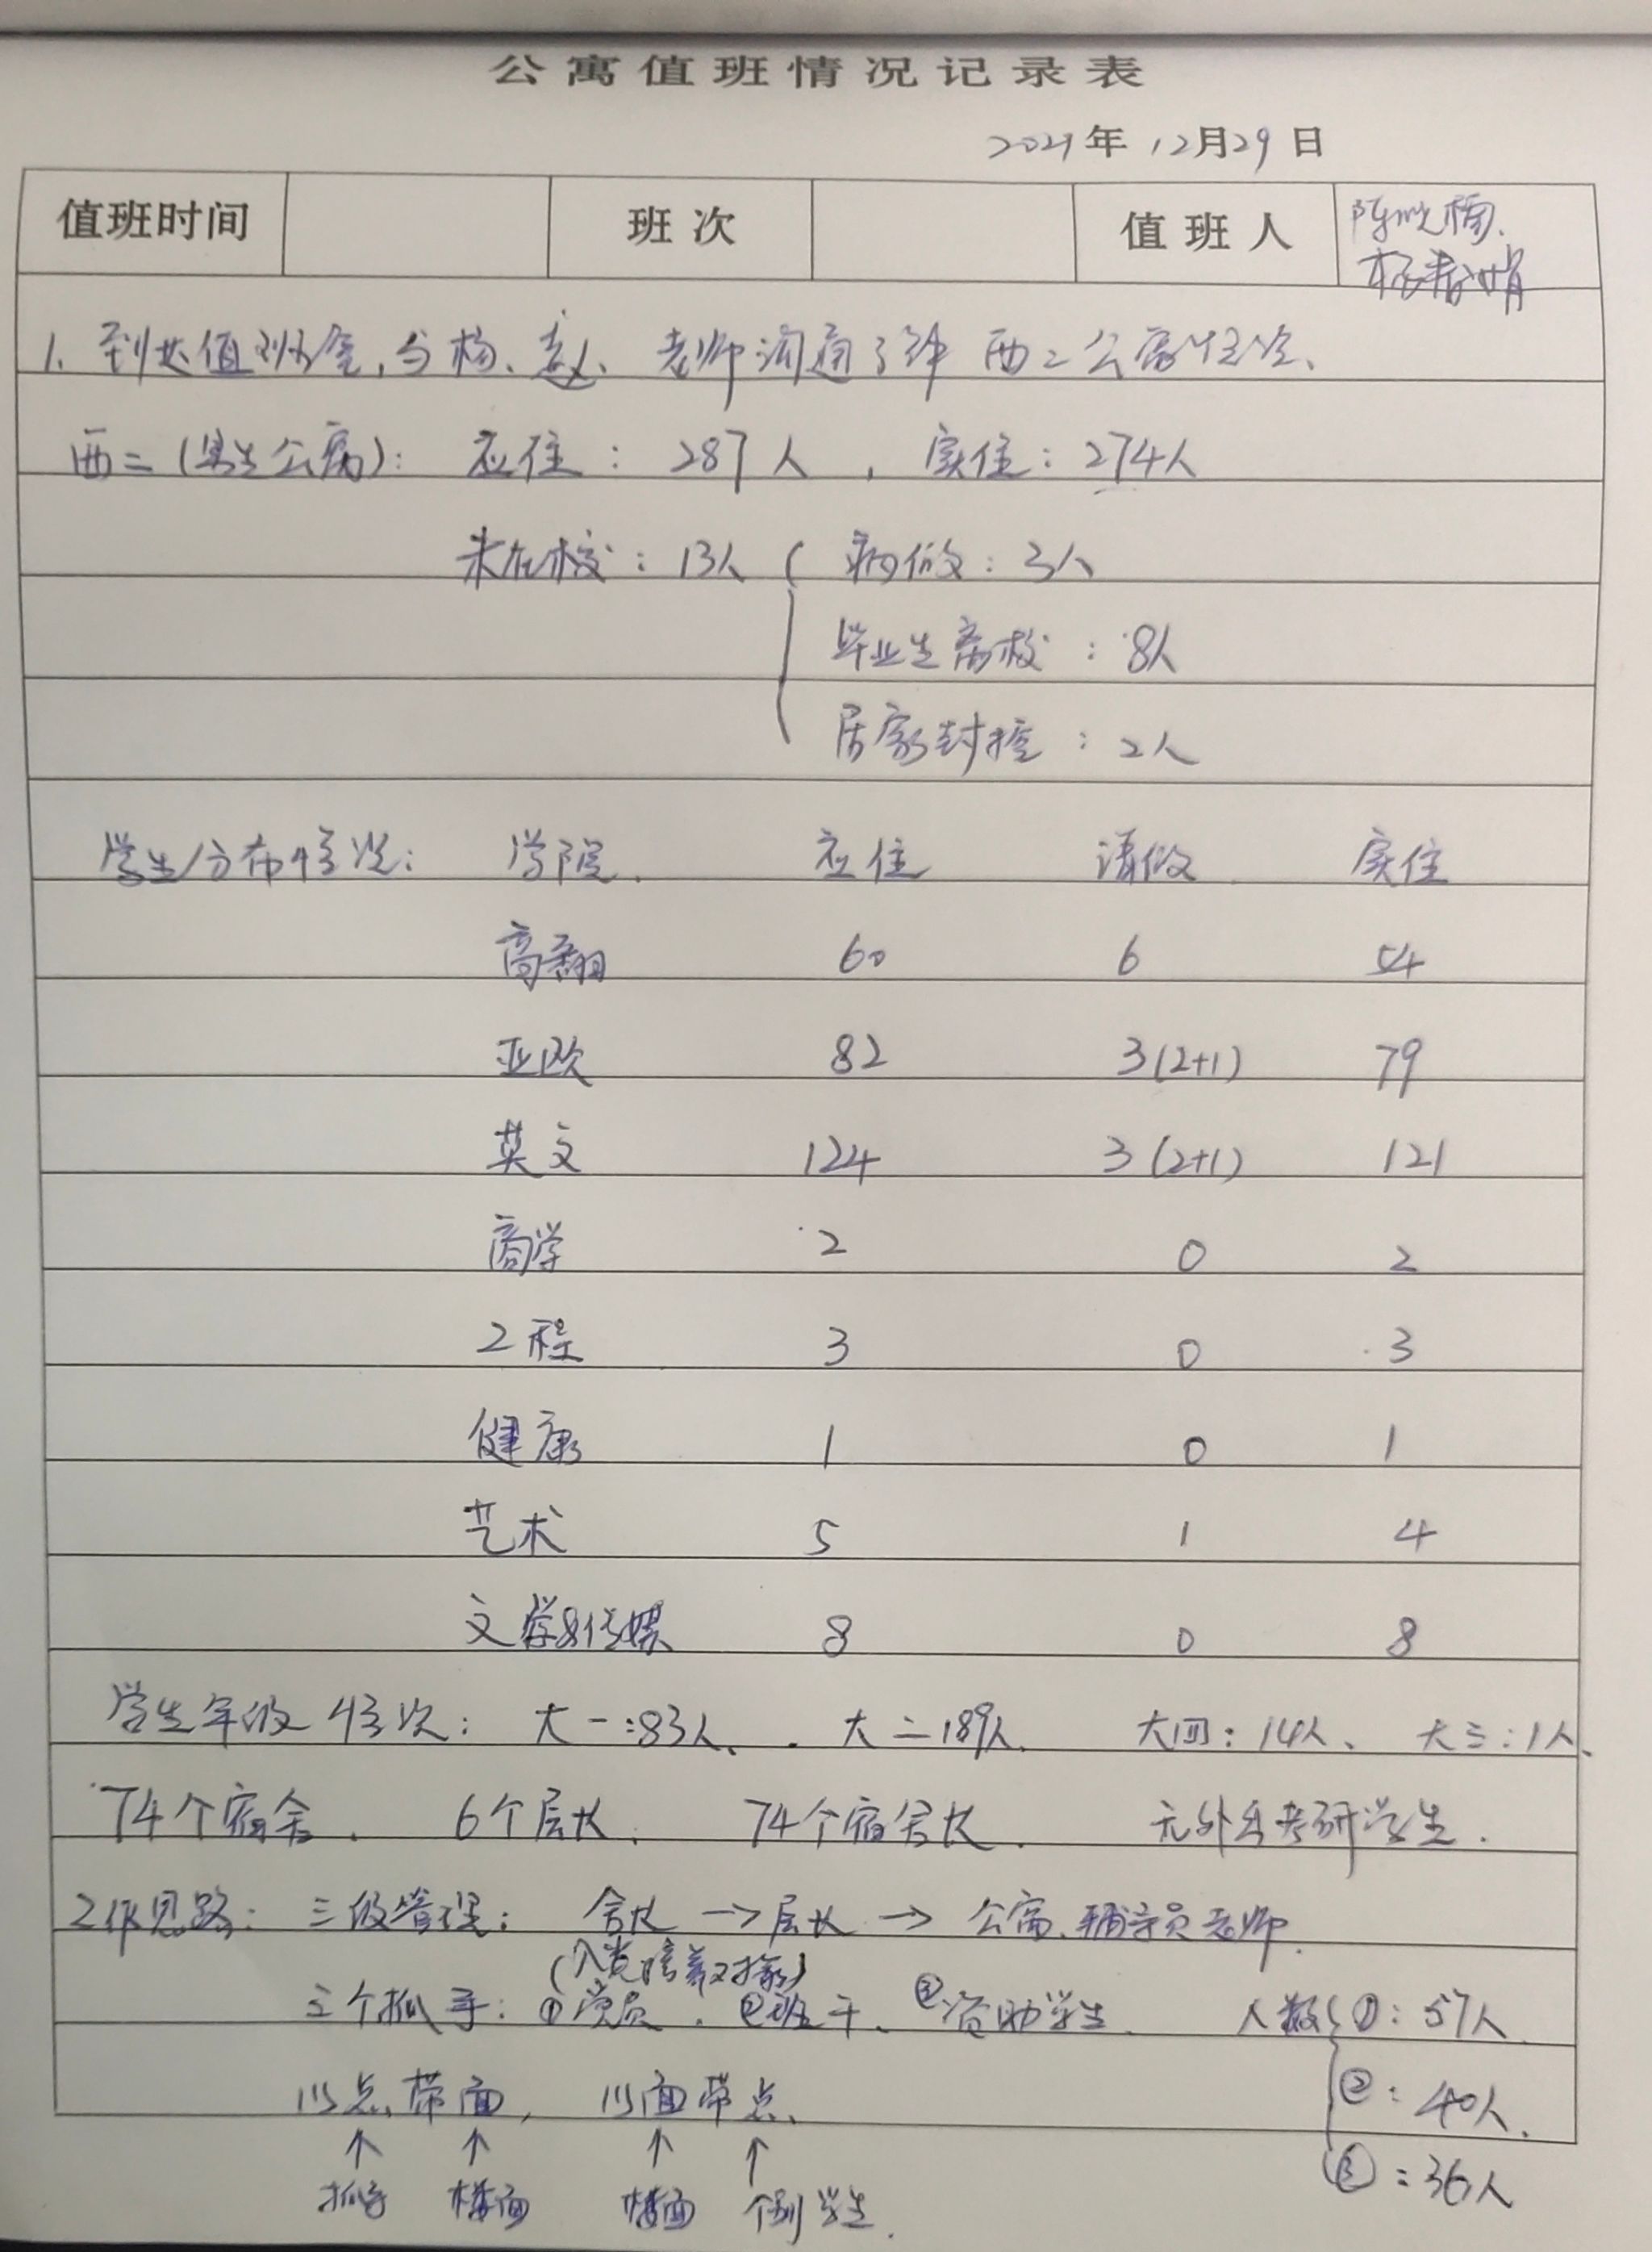 公寓值班情况记录表
2021年12月29日
值班时间 班次 值班人 陈 杨
杨春娟
1. 到达值班室,与杨、赵、老师沟通了解西二公寓情况、
西二(男生公寓): 应住: 287人, 实住: 274人
未在校: 13人 病假: 3人
毕业生离校: 8人
居家封控: 2人
学生分布情况: 学院. 应住 请假 实住
高翻 60 6 54
亚欧 82 3(2+1) 79
英文 124 3(2+1) 121
商学 2 0 2
工程 3 0 3
健康 1 0 1
艺术 5 1 4
文学&传媒 8 0 8
学生年级情况: 大一:83人、 大二189人、 大四: 14人、 大三:1人、
74个宿舍. 6个层长. 74个宿舍长. 无外出考研学生.
工作思路: 三级管理: 舍长→层长→公寓、辅导员老师.
(入党培养对象)
三个抓手: ①党员. ②班干、③资助学生. 人数 ①: 57人.
以点带面, 以面带点、 ②: 40人.
↑ ↑ ↑ ↑ ③: 36人
抓手 楼面 楼面 个别学生.